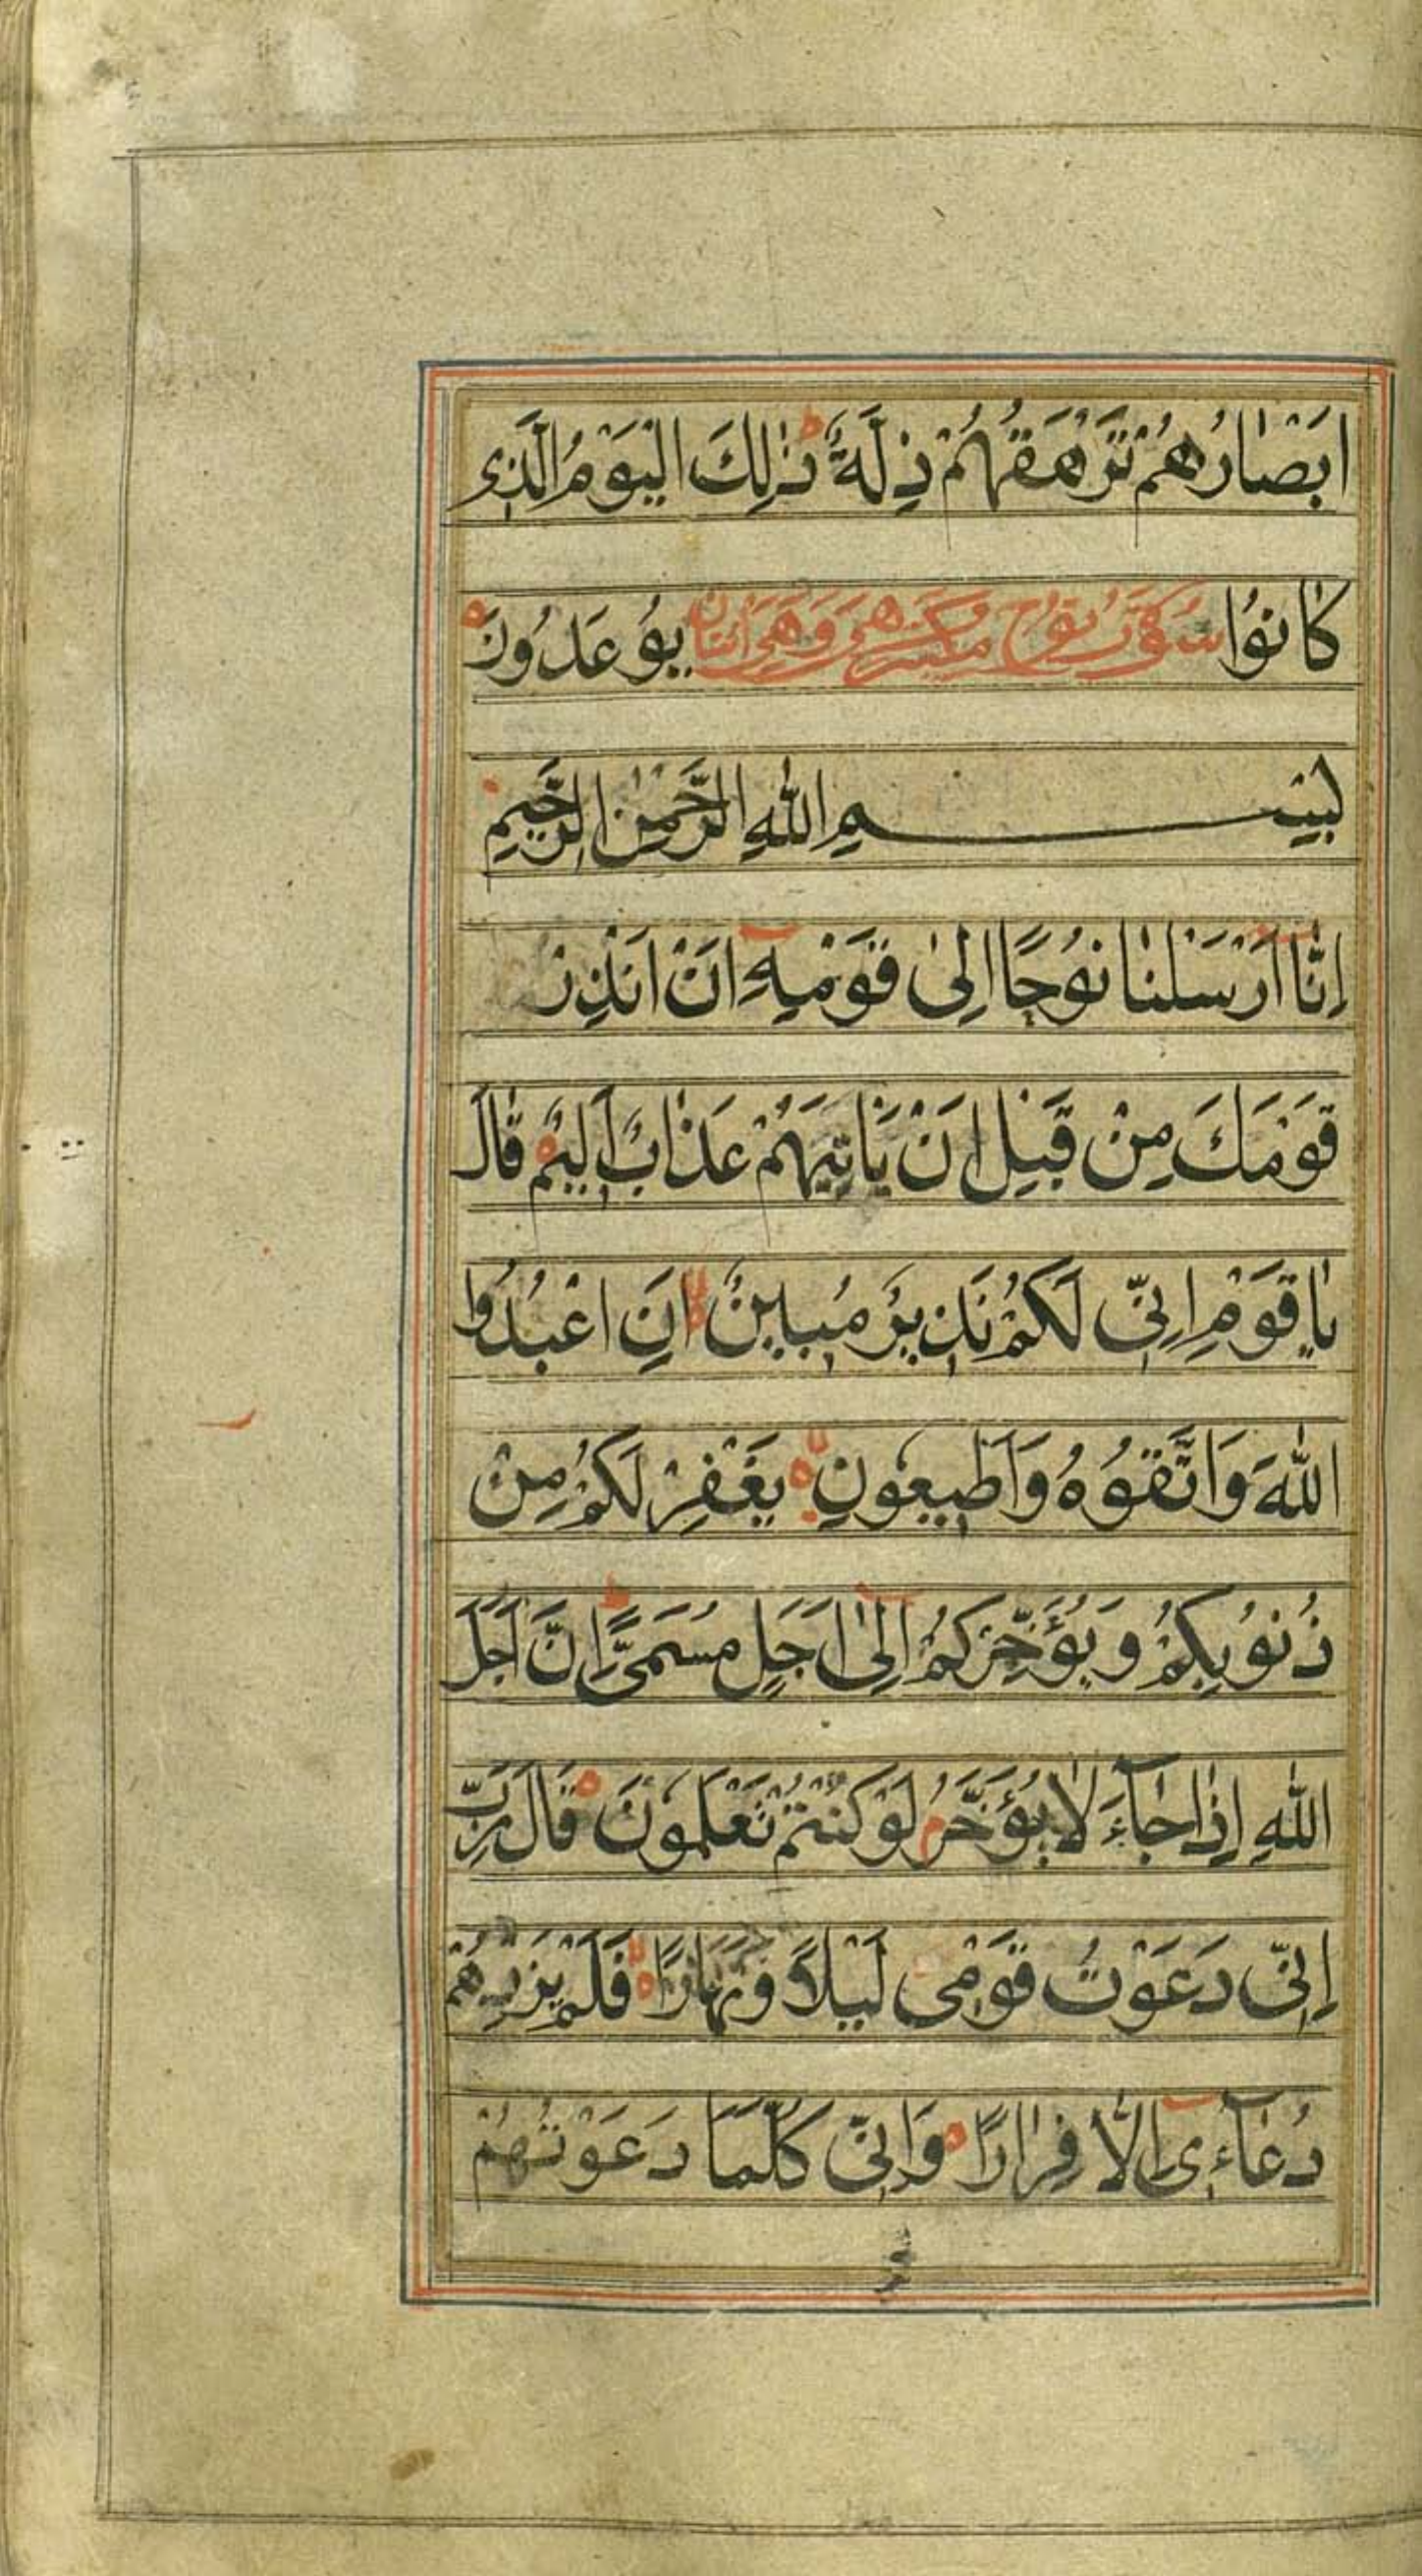 اَبْصَارُهُمْ تَرْهَقُهُمْ ذِلَّةٌ ط ذٰلِكَ الْيَوْمُ الَّذِی
كَانُوْا سُوْرَةُ نُوْحٍ مَكِّيَّةٌ وَهِیَ يُوْعَدُوْنَ
بِسْمِ اللّٰهِ الرَّحْمٰنِ الرَّحِيْمِ
اِنَّا اَرْسَلْنَا نُوْحًا اِلٰى قَوْمِهٖ اَنْ اَنْذِرْ
قَوْمَكَ مِنْ قَبْلِ اَنْ يَاْتِيَهُمْ عَذَابٌ اَلِيْمٌ قَالَ
يَاقَوْمِ اِنِّی لَكُمْ نَذِيْرٌ مُبِيْنٌ لا اَنِ اعْبُدُوا
اللّٰهَ وَاتَّقُوْهُ وَاَطِيْعُوْنِ لا يَغْفِرْ لَكُمْ مِنْ
ذُنُوْبِكُمْ وَيُؤَخِّرْكُمْ اِلٰى اَجَلٍ مُسَمًّى ط اِنَّ اَجَلَ
اللّٰهِ اِذَا جَآءَ لَا يُؤَخَّرُ م لَوْ كُنْتُمْ تَعْلَمُوْنَ قَالَ رَبِّ
اِنِّی دَعَوْتُ قَوْمِی لَيْلًا وَنَهَارًا لا فَلَمْ يَزِدْهُمْ
دُعَآءِی اِلَّا فِرَارًا وَاِنِّی كُلَّمَا دَعَوْتُهُمْ